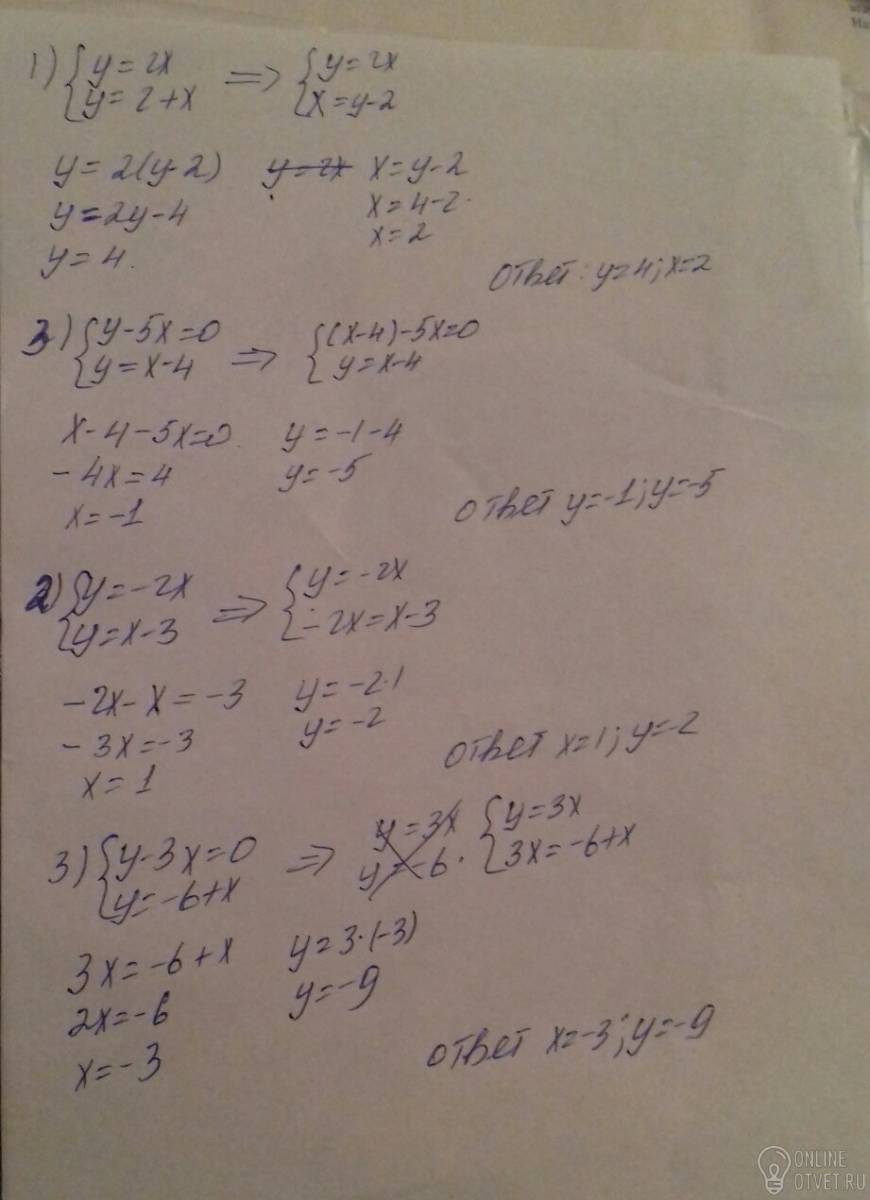 1) { y = 2x => { y = 2x
y = 2 + x x = y - 2
y = 2(y - 2) y = 2x x = y - 2
y = 2y - 4 x = 4 - 2
y = 4. x = 2
ответ: y = 4; x = 2
3) { y - 5x = 0 => { (x - 4) - 5x = 0
y = x - 4 y = x - 4
x - 4 - 5x = 0. y = -1 - 4
- 4x = 4 y = -5
x = -1
ответ y = -1; y = -5
2) { y = -2x => { y = -2x
y = x - 3 -2x = x - 3
-2x - x = -3 y = -2·1
- 3x = -3 y = -2
x = 1
ответ x = 1; y = -2
3) { y - 3x = 0 => y = 3x { y = 3x
y = -6 + x y = -6 3x = -6 + x
3x = -6 + x y = 3·(-3)
2x = -6 y = -9
x = -3
ответ x = -3; y = -9
ONLINE
OTVET.RU